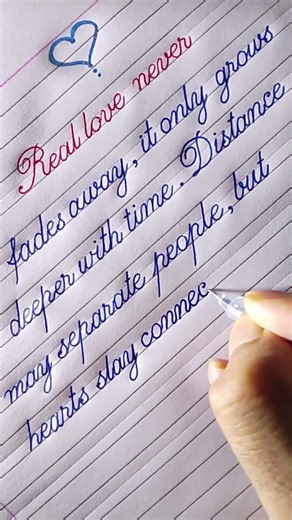 Real love never
fades away, it only grows
deeper with time. Distance
may separate people, but
hearts stay connec